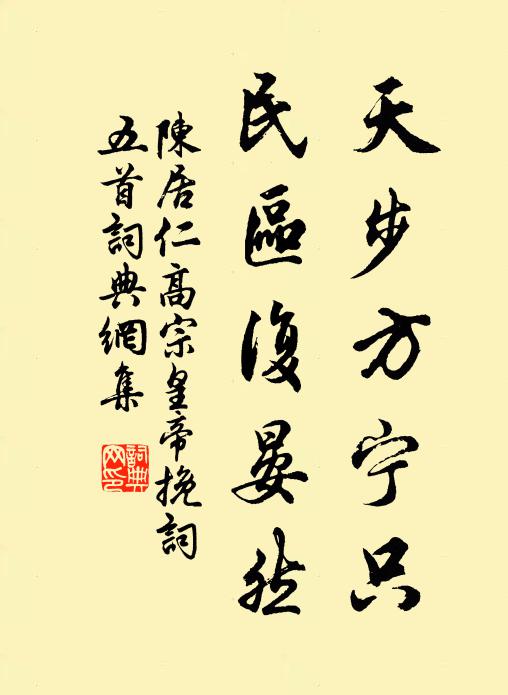 天步方宁只
民區復晏然
陳居仁高宗皇帝挽詞
五首詞典網集
詞典
网印